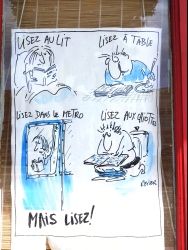 LISEZ AU LIT
LISEZ À TABLE
LISEZ DANS LE METRO
LISEZ AUX CHIOTTES
MAIS LISEZ!